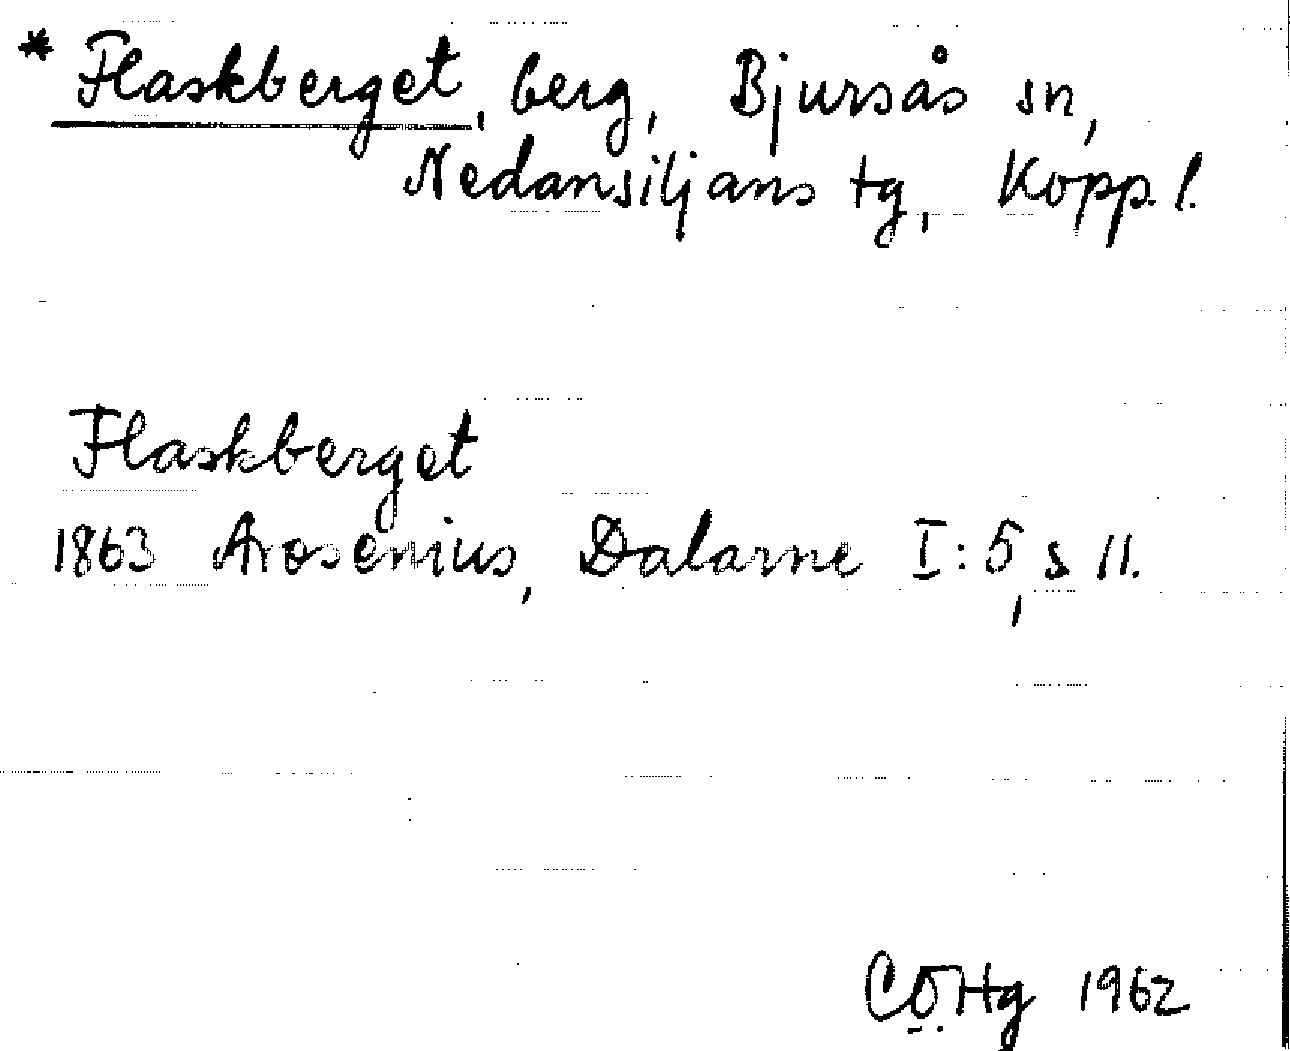 * Flaskberget, berg, Bjursås sn,
Nedansiljans tg, Kopp. l.
Flaskberget
1863 Arosenius, Dalarne I:5, s 11.
CÖHg 1962